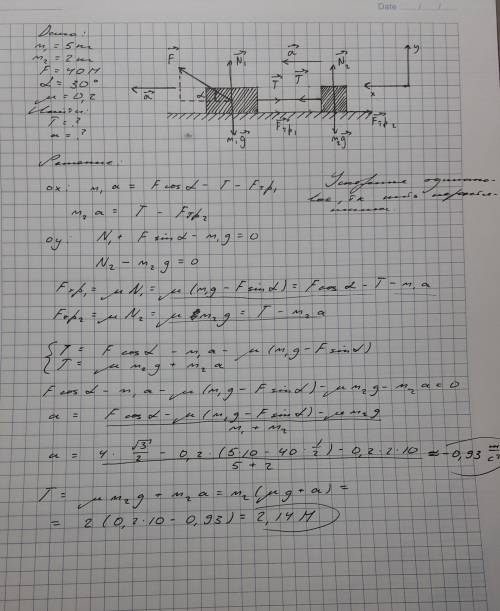 Date / /
Дано:
m₁ = 5 кг
m₂ = 2 кг
F = 40 Н
α = 30°
μ = 0,2
Найти:
T = ?
a = ?
F⃗ N⃗₁ a⃗ N⃗₂ y
a⃗ α T⃗ T⃗ x
F⃗тр₁ F⃗тр₂
m₁g⃗ m₂g⃗
Решение:
Ускорение одинако-
вое, т.к. нить нерастя-
жимая
ox: m₁a = F cos α - T - Fтр₁
m₂a = T - Fтр₂
oy: N₁ + F sin α - m₁g = 0
N₂ - m₂g = 0
Fтр₁ = μN₁ = μ(m₁g - F sin α) = F cos α - T - m₁a
Fтр₂ = μN₂ = μ m₂g = T - m₂a
{ T = F cos α - m₁a - μ(m₁g - F sin α)
{ T = μm₂g + m₂a
F cos α - m₁a - μ(m₁g - F sin α) - μm₂g - m₂a = 0
a = (F cos α - μ(m₁g - F sin α) - μm₂g) / (m₁ + m₂)
a = (4 · √3/2 - 0,2 · (5·10 - 40 · 1/2) - 0,2·2·10) / (5 + 2) ≈ -0,93 м/с²
T = μm₂g + m₂a = m₂(μg + a) =
= 2(0,2·10 - 0,93) = 2,14 Н